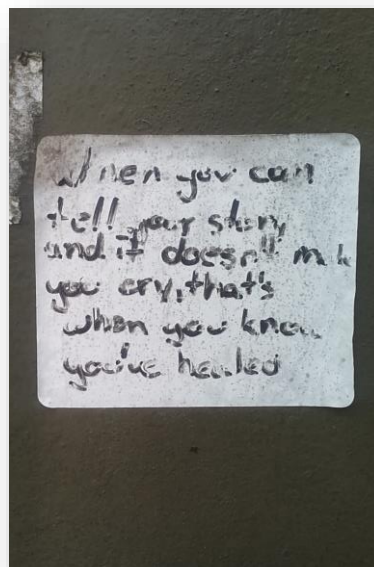 When you can
tell your story
and it doesn't mak
you cry, that's
when you know
you've healed